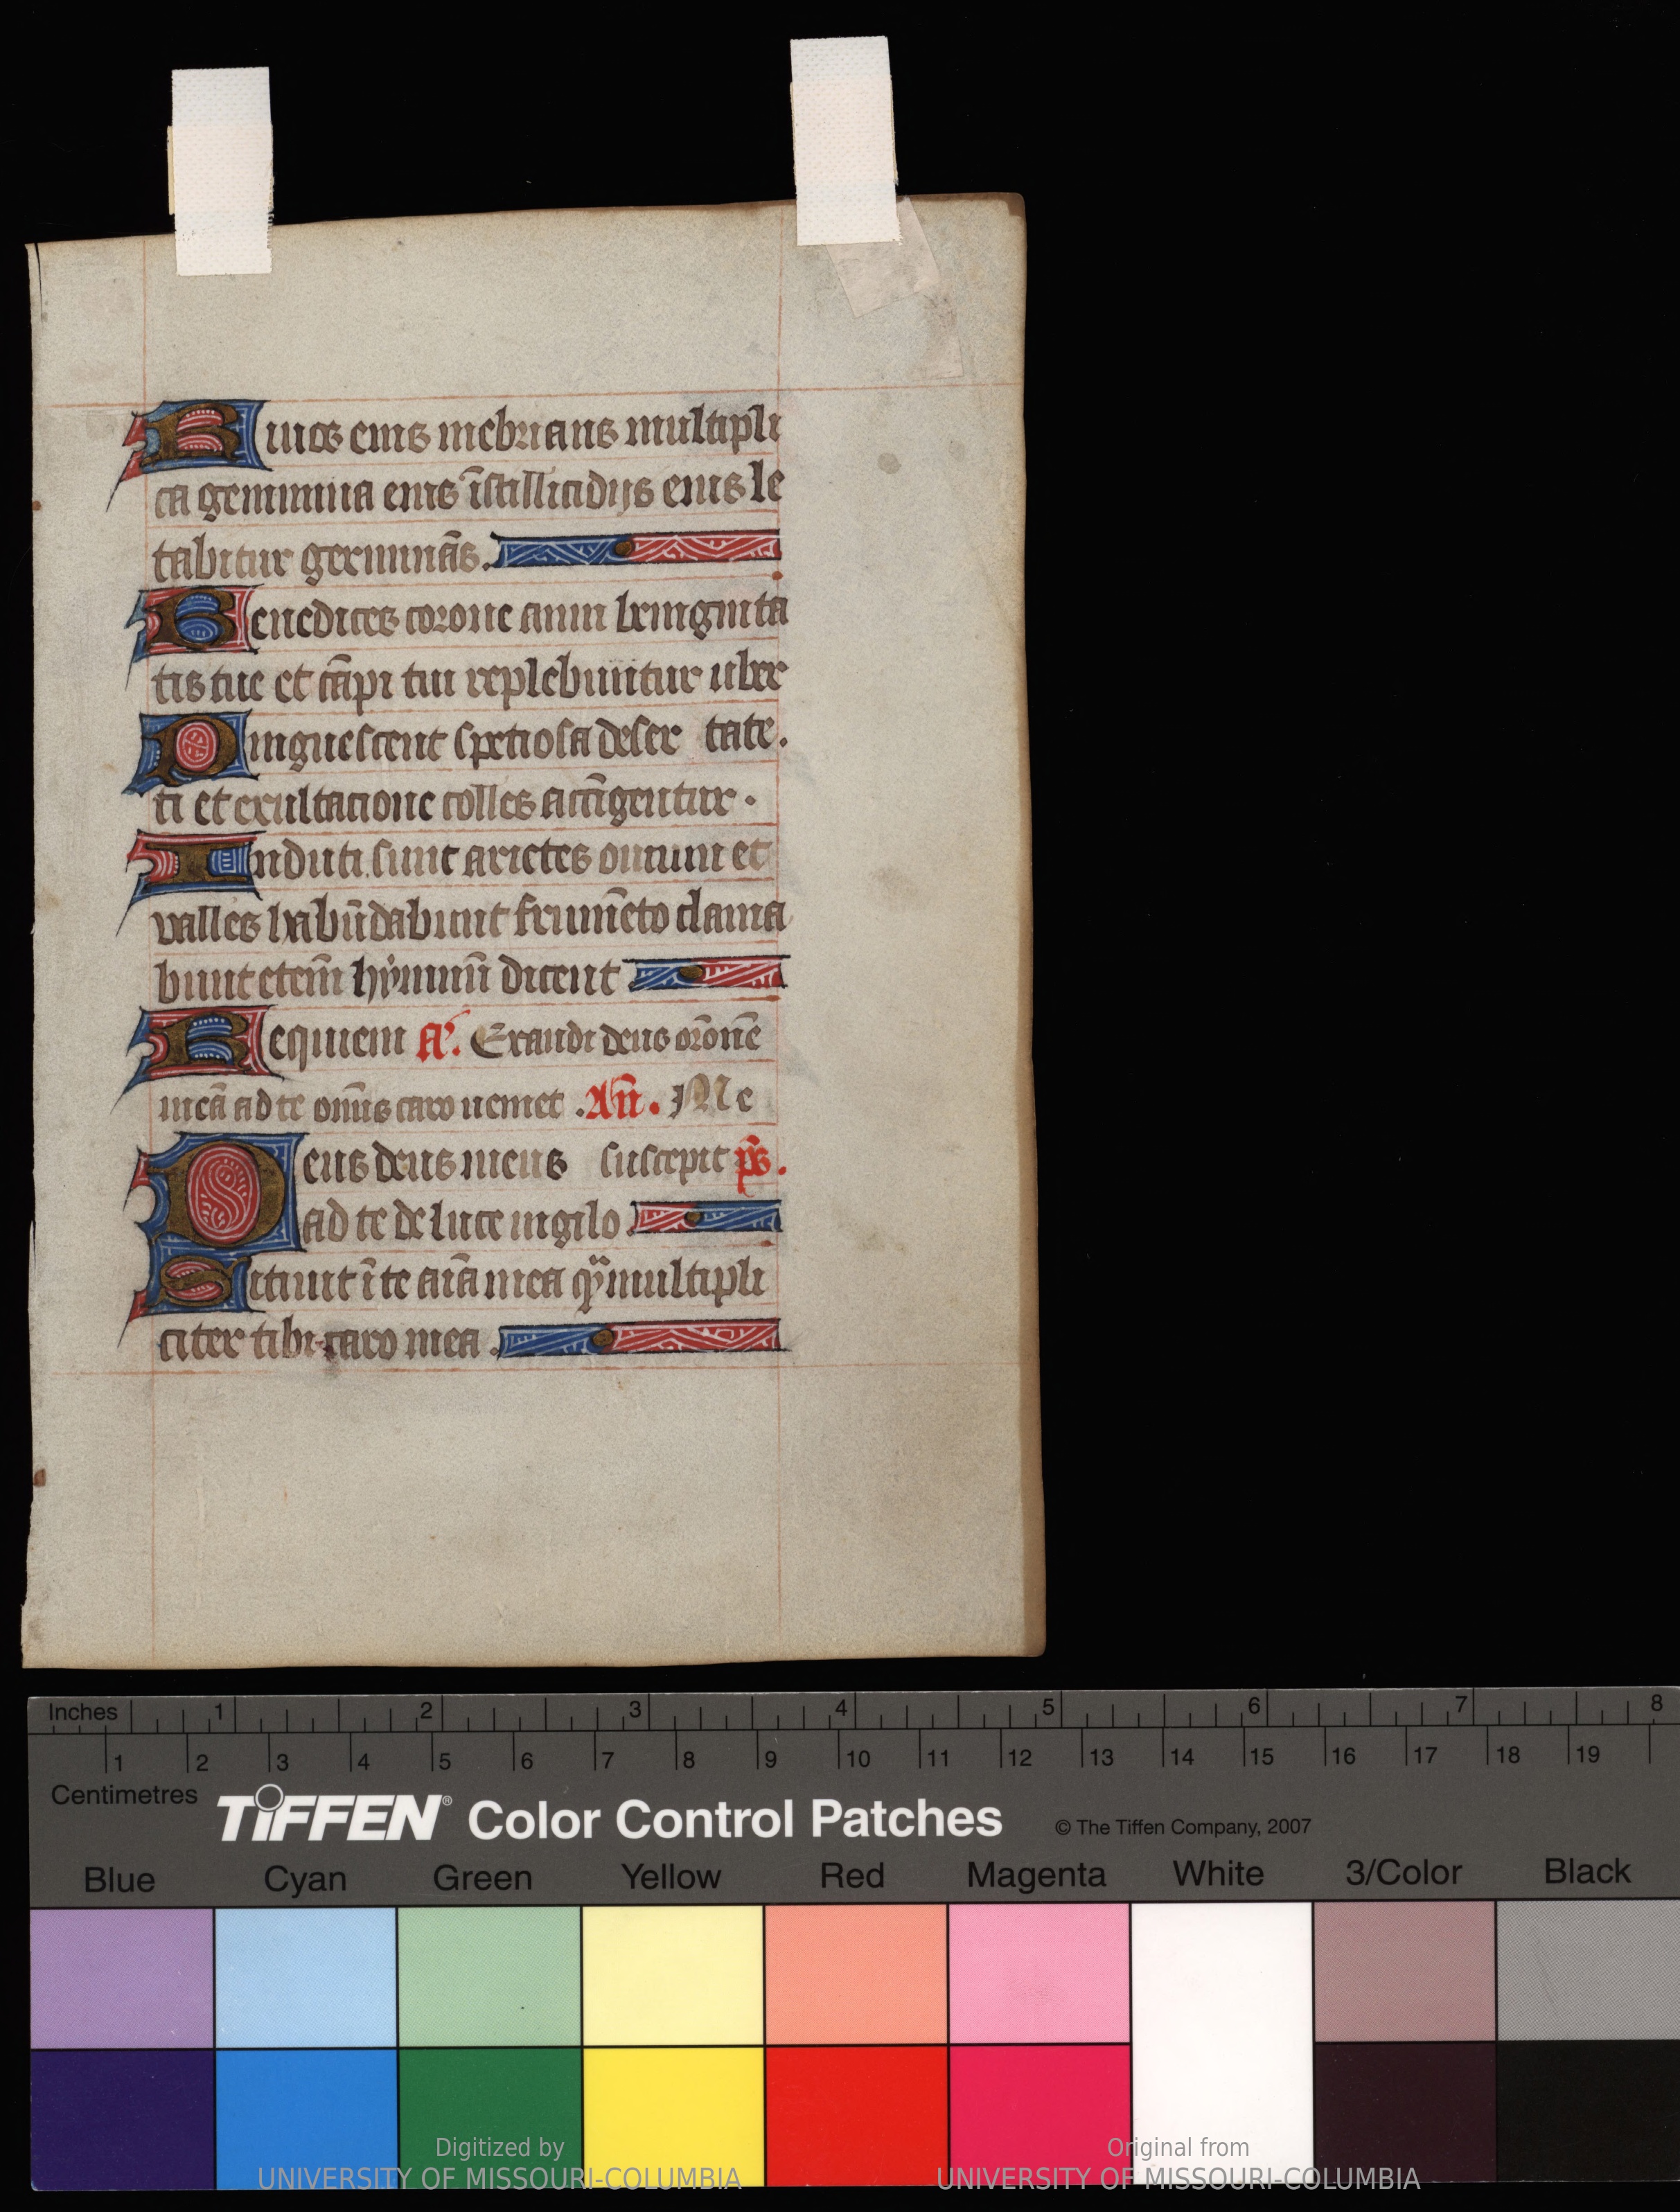 Riuos eius inebrians multipli
ca genimina eius ī stillicidijs eius le
tabitur germinās.
Benedices corone anni benignita
tis tue et cāpi tui replebuntur uber
Pinguescent spetiosa deser tate.
ti et exultacione colles accīgentur.
Induti sunt arietes ouium et
valles habūdabunt frumēto clama
bunt etem̄ hẏmnū dicent
Requiem Aͬ. Exaudi deus orōnē
meā ad te om̄is caro ueniet. An̄. Me
Deus deus meus suscepit ps̄.
ad te de luce uigilo.
Sitiuit ī te aīa mea qͫ multipli
citer tibi caro mea.
Inches 1 2 3 4 5 6 7 8
1 2 3 4 5 6 7 8 9 10 11 12 13 14 15 16 17 18 19
Centimetres
TIFFEN® Color Control Patches © The Tiffen Company, 2007
Blue Cyan Green Yellow Red Magenta White 3/Color Black
Digitized by Original from
UNIVERSITY OF MISSOURI-COLUMBIA UNIVERSITY OF MISSOURI-COLUMBIA